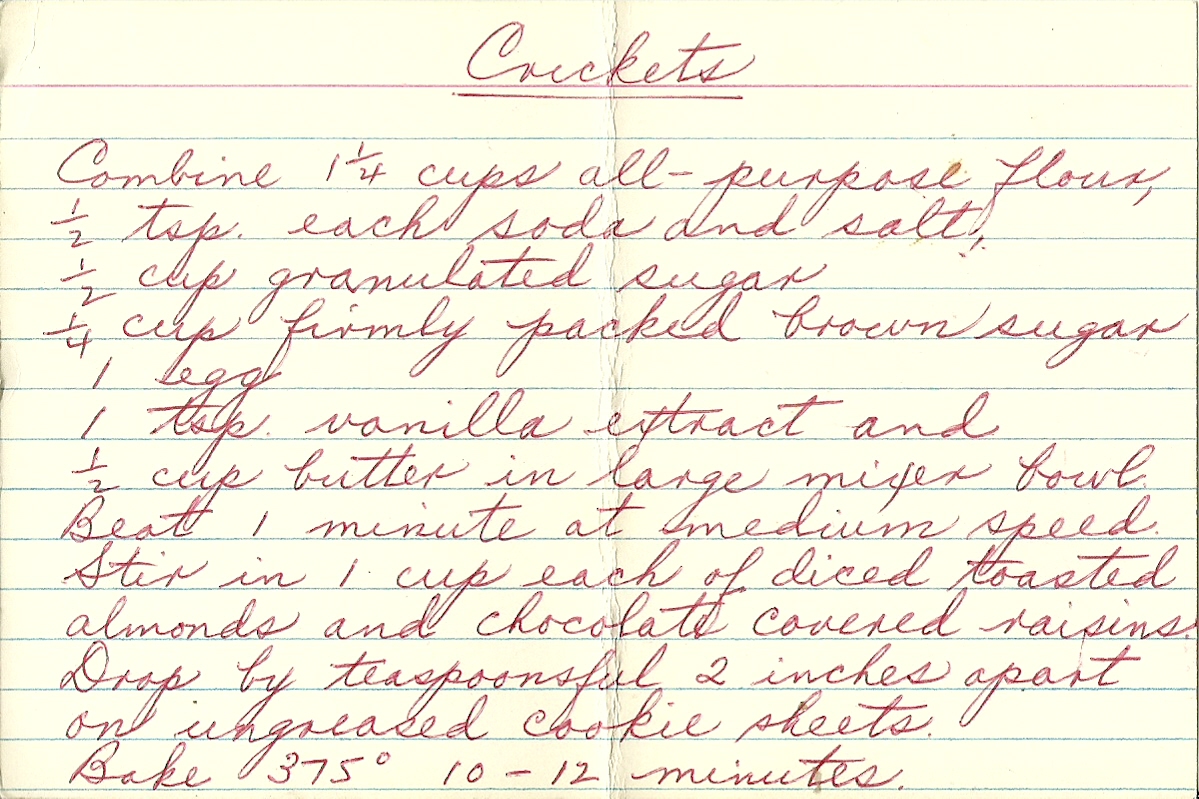 Crickets
Combine 1 1/4 cups all-purpose flour,
1/2 tsp. each soda and salt,
1/2 cup granulated sugar
1/4 cup firmly packed brown sugar
1 egg
1 tsp. vanilla extract and
1/2 cup butter in large mixer bowl.
Beat 1 minute at medium speed.
Stir in 1 cup each of diced toasted
almonds and chocolate covered raisins.
Drop by teaspoonsful 2 inches apart
on ungreased cookie sheets.
Bake 375° 10-12 minutes.